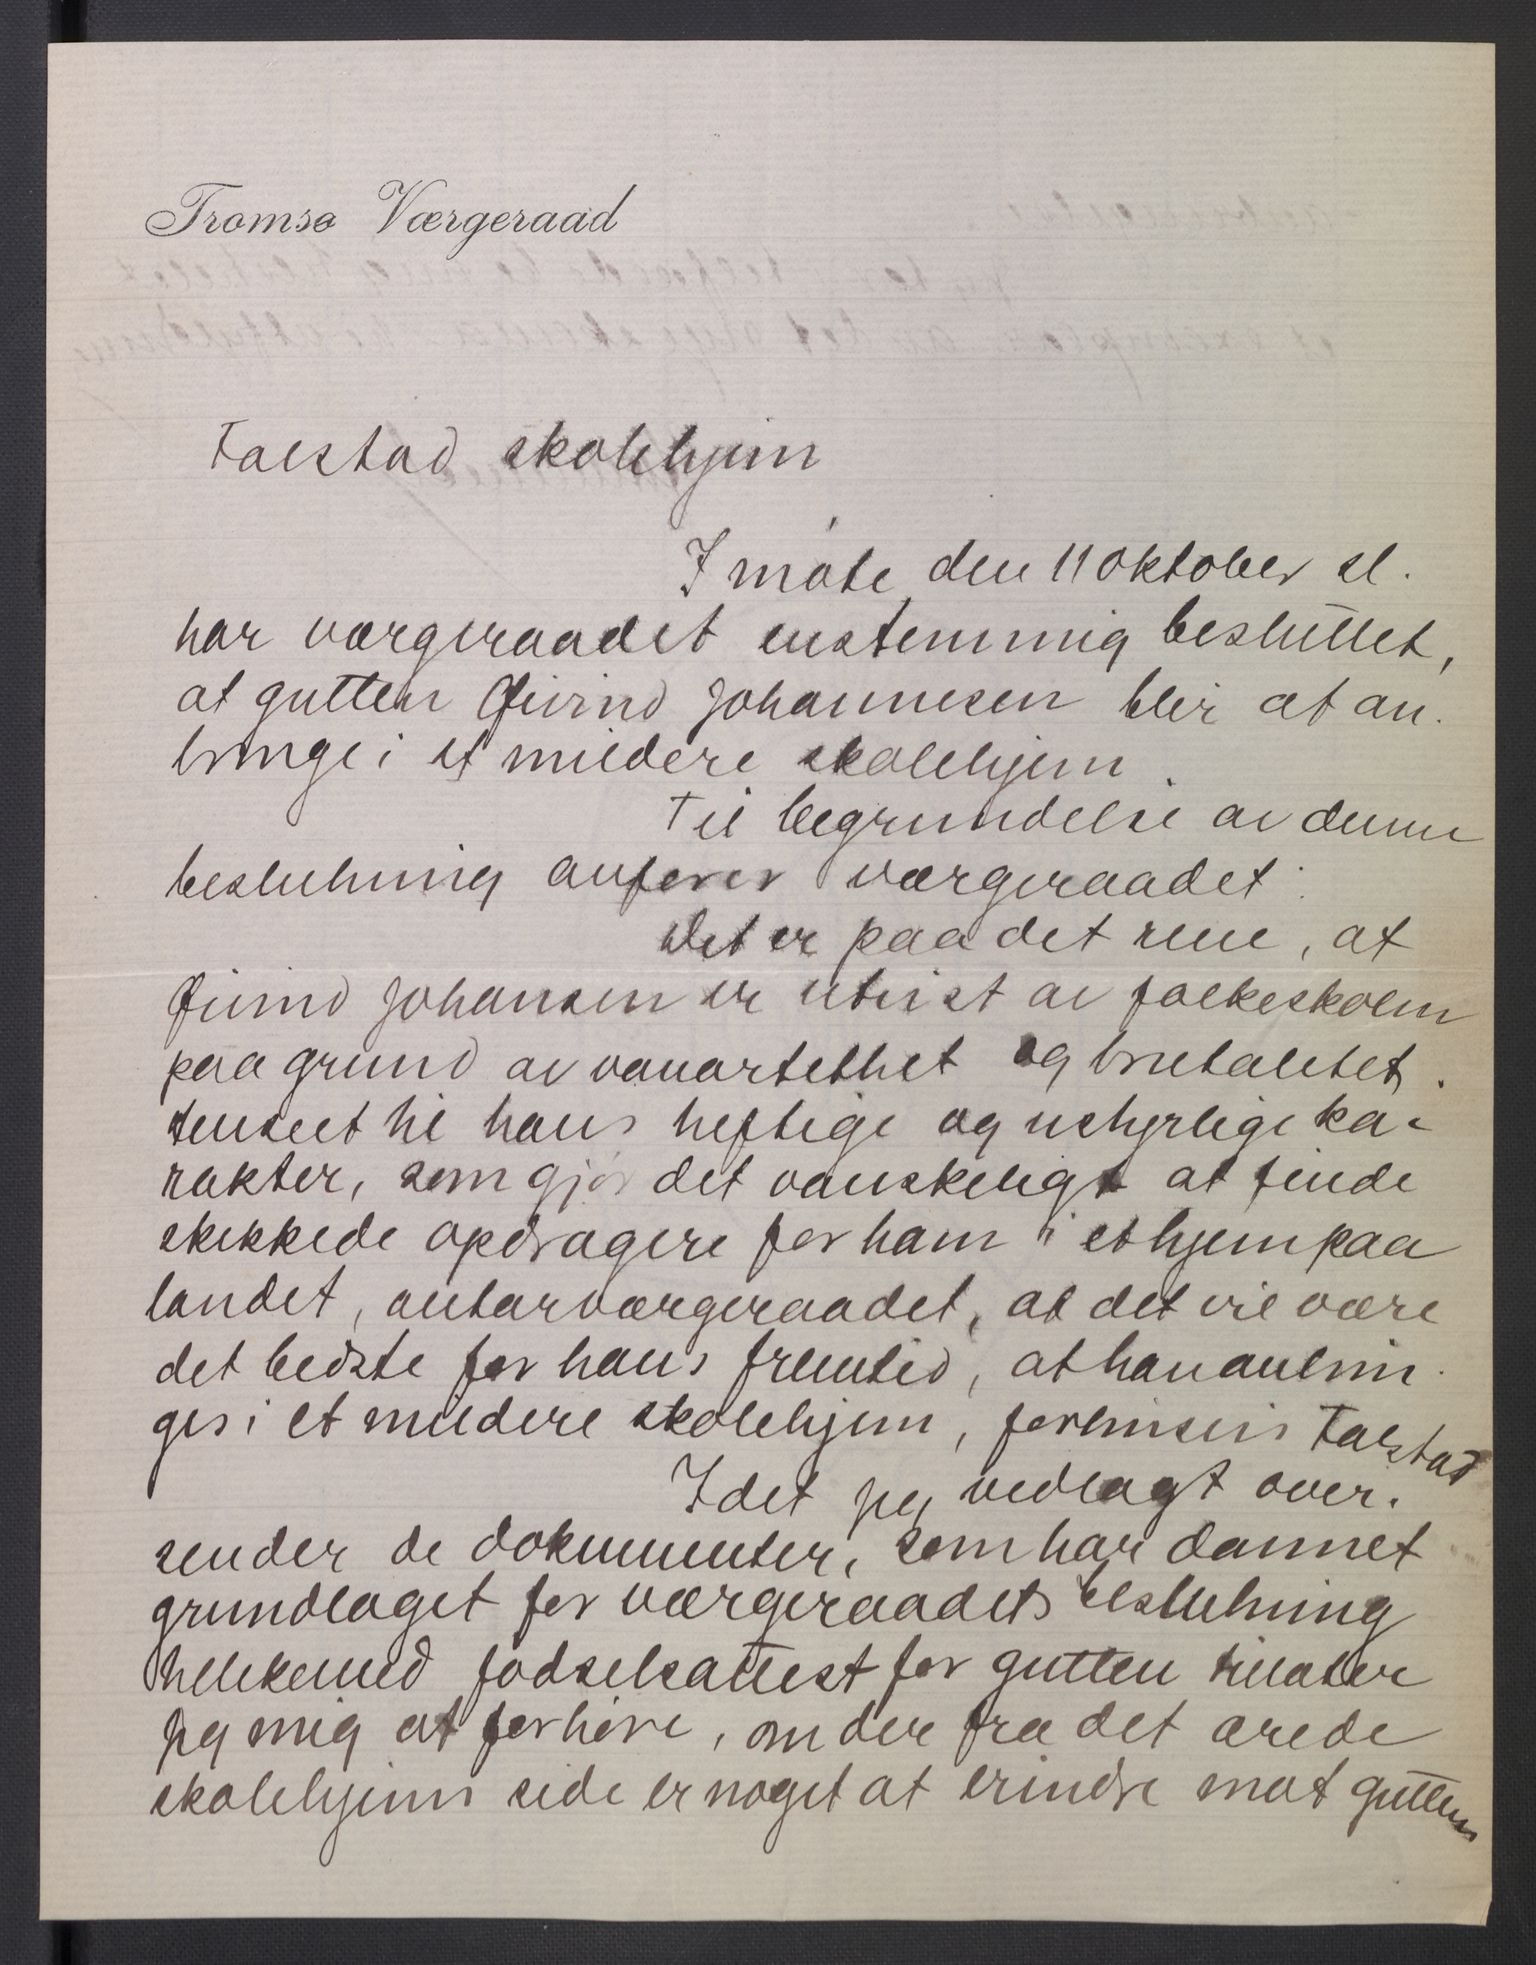 Tromsø Værgeraad
Falstad skolehjem
I møte den 11 oktober sl.
har værgeraadet enstemmig besluttet,
at gutten Øivind Johannesen blir at an-
bringe i et mildere skolehjem.
Til begrundelse av denne
beslutning anfører værgeraadet:
Det er paa det rene, at
Øivind Johansen er utvist av folkeskolen
paa grund av vanartethet og brutalitet.
Henseet til hans heftige og ustyrlige ka-
rakter, som gjør det vanskeligt at finde
skikkede opdragere for ham i et hjem paa
landet, antar værgeraadet, at det vil være
det bedste for hans fremtid, at han anbrin-
ges i et mildere skolehjem, forhinsvis Falstad
Idet jeg vedlagt over-
sender de dokumenter, som har dannet
grundlaget for værgeraadets beslutning
tillikemed fødselsattest for gutten tillater
jeg mig at forhøre, om der fra det ærede
skolehjems side er noget at erindre mot guttens